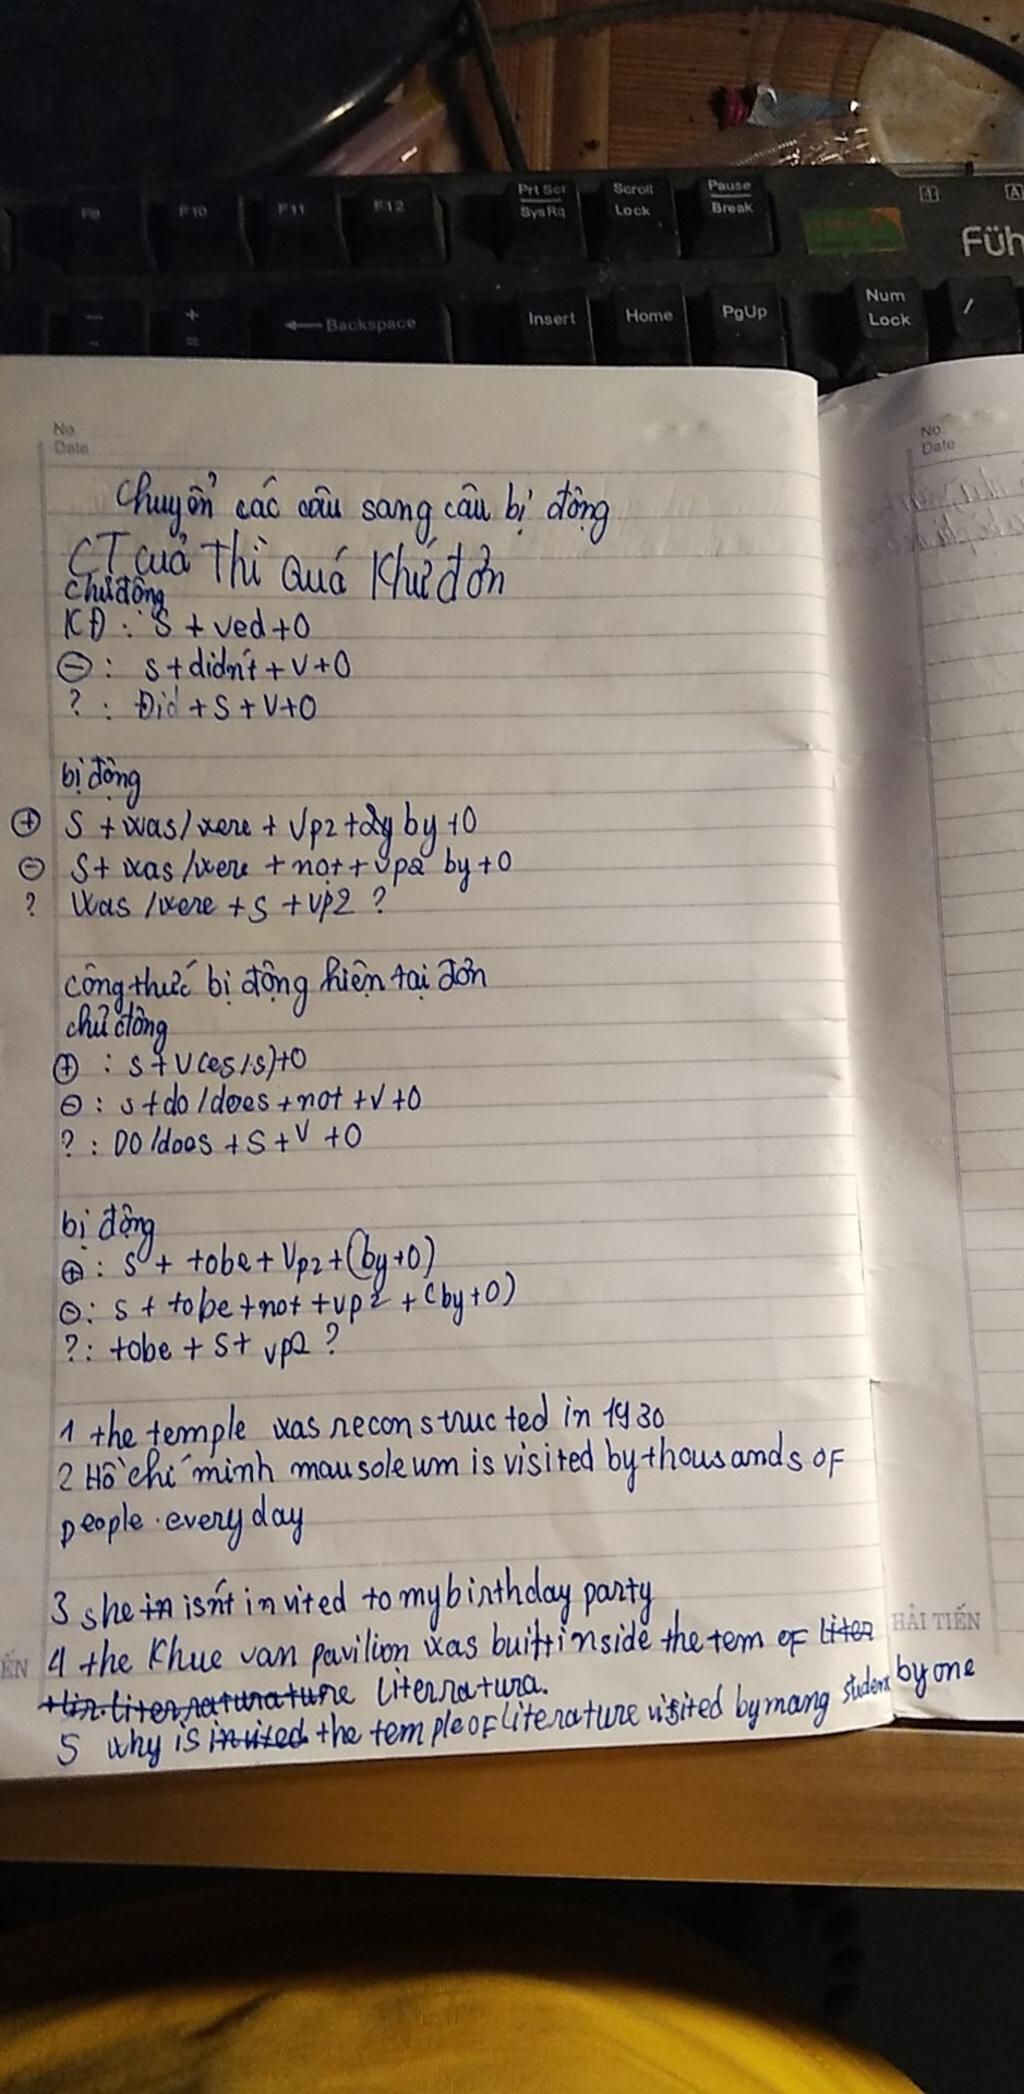 F9 F10 F11 F12 Prt Scr SysRq Scroll Lock Pause Break
Füh
Backspace Insert Home PgUp Num Lock /
No.
Date
No.
Date
Chuyển các câu sang câu bị động
CT của Thì Quá Khứ đơn
Chủ động
KĐ : S + ved + O
⊖ : S + didn't + V + O
? : Đid + S + V + O
bị động
⊕ S + was / were + Vp2 + by + O
⊖ S + was / were + not + vp2 by + O
? Was / were + S + vp2 ?
công thức bị động hiện tại đơn
chủ động
⊕ : S + V(es/s) + O
⊖ : S + do / does + not + V + O
? : DO / does + S + V + O
bị động
⊕ : S + tobe + Vp2 + (by + O)
⊖ : S + tobe + not + vp2 + (by + O)
? : tobe + S + vp2 ?
1 the temple was reconstructed in 1930
2 Hồ chí minh mausoleum is visited by thousands of
people . every day
3 she in isn't invited to my birthday party
4 the Khue van pavilion was built inside the tem of liter
Literratura.
5 why is invited the temple of literature visited by mang student by one
HẢI TIẾN
ẾN